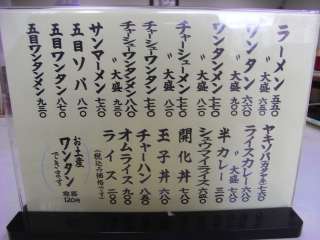 ラーメン 五五〇
〃 大盛 六五〇
ワンタン 六六〇
〃 大盛 七六〇
ワンタンメン 七六〇
〃 大盛
チャーシューメン 七七〇
〃 大盛
チャーシューワンタン
チャーシューワンタンメン
サンマーメン 七七〇
〃 大盛
五目ソバ 八二〇
五目ワンタン 八七〇
五目ワンタンメン 九三〇
ヤキソバ(カタヤキ) 七六〇
ライスカレー
半カレー
シュウマイライス 六五〇
開化丼 七六〇
玉子丼 六五〇
チャーハン
オムライス
ライス 二〇〇
(税込み価格です)
お土産
ワンタン
できます
容器
120円